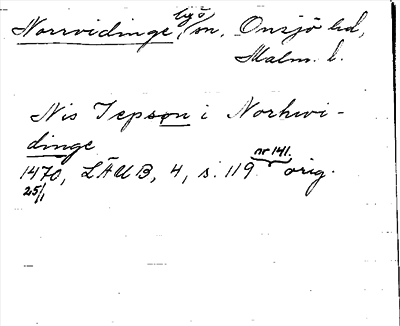 Norrvidinge by o sn, Onsjö hd,
Malm. l.
Nis Jepson i Norhwi-
dinge
1470, LÄUB, 4, s. 119 nr 141. orig.
25/1